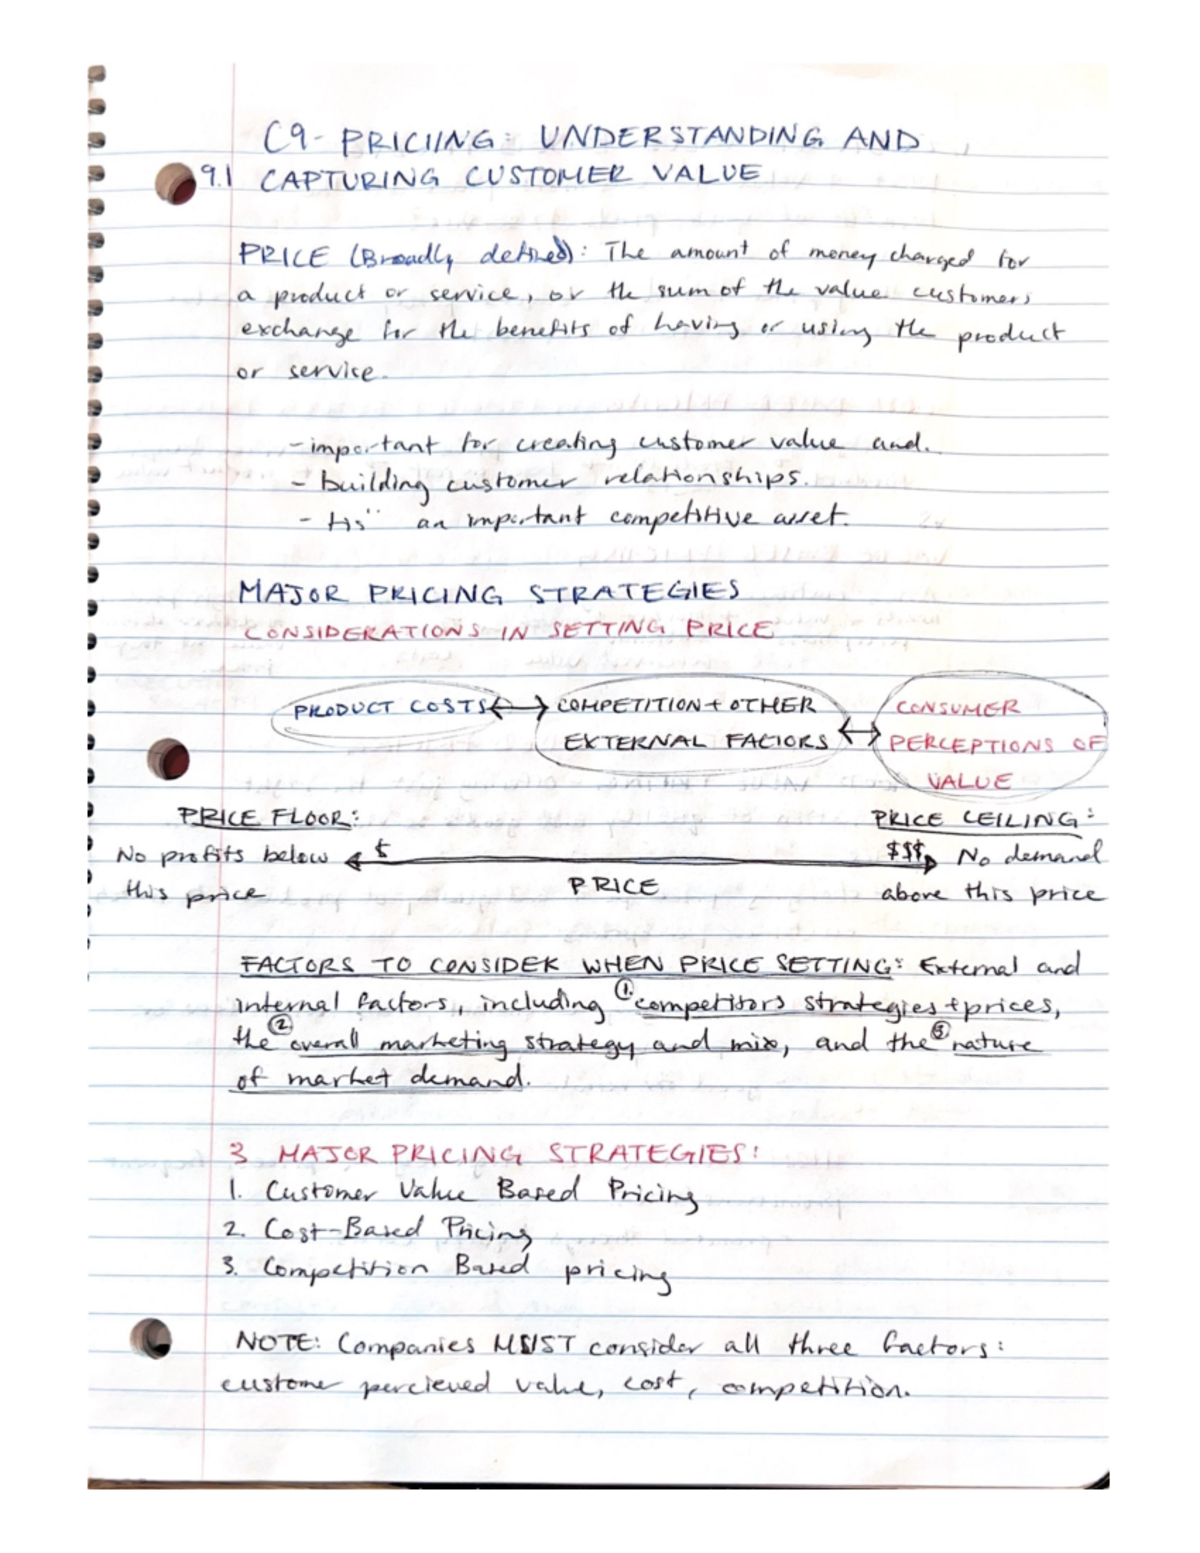 C9- PRICIING: UNDERSTANDING AND
9.1 CAPTURING CUSTOMER VALUE
PRICE (Broadly defined): The amount of money charged for
a product or service, or the sum of the value customers
exchange for the benefits of having or using the product
or service.
- important for creating customer value and.
- building customer relationships.
- an important competitive asset.
MAJOR PRICING STRATEGIES
CONSIDERATIONS IN SETTING PRICE
PRODUCT COSTS ↔ COMPETITION + OTHER CONSUMER
EXTERNAL FACTORS ↔ PERCEPTIONS OF
VALUE
PRICE FLOOR: PRICE CEILING:
No profits below $ $$$ No demand
this price PRICE above this price
FACTORS TO CONSIDER WHEN PRICE SETTING: External and
internal factors, including ① competitors strategies + prices,
the ② overall marketing strategy and mix, and the ③ nature
of market demand.
3 MAJOR PRICING STRATEGIES:
1. Customer Value Based Pricing
2. Cost-Based Pricing
3. Competition Based pricing
NOTE: Companies MUST consider all three factors:
customer percieved value, cost, competition.